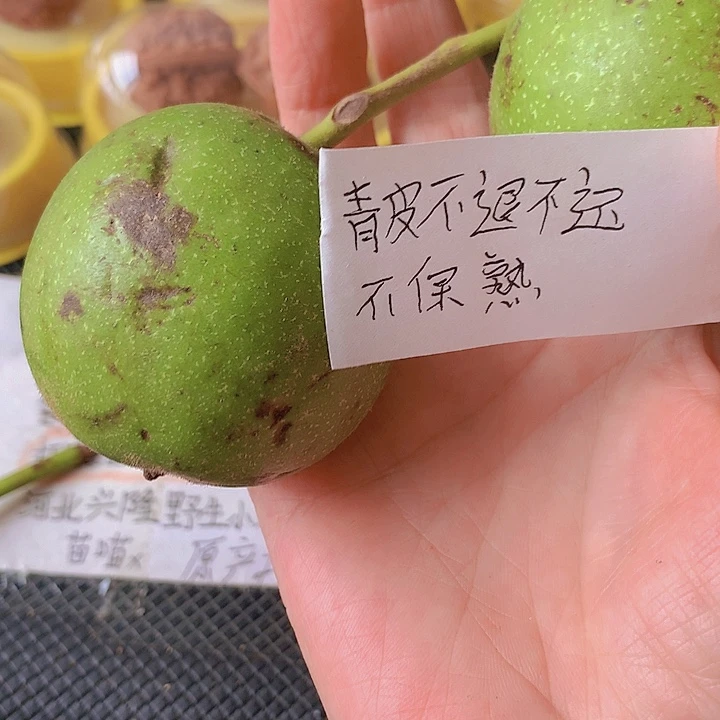 青皮不退不还
不保熟
北兴隆野生小
苗喵
原产